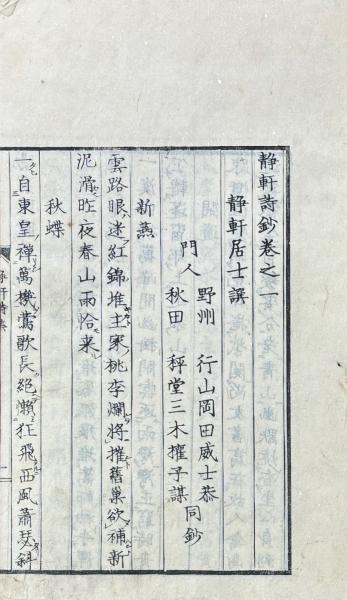 静軒詩鈔卷之一
静軒居士譔
門人 野州 行山岡田威士恭 同鈔
秋田 秤堂三木擢子謀
新燕
雲路眼迷紅錦堆主家桃李爛將摧舊巢欲補新
泥滑昨夜春山雨恰来
秋蝶
一自東皇禅萬機鶯歌長絕懶狂飛西風蕭瑟斜